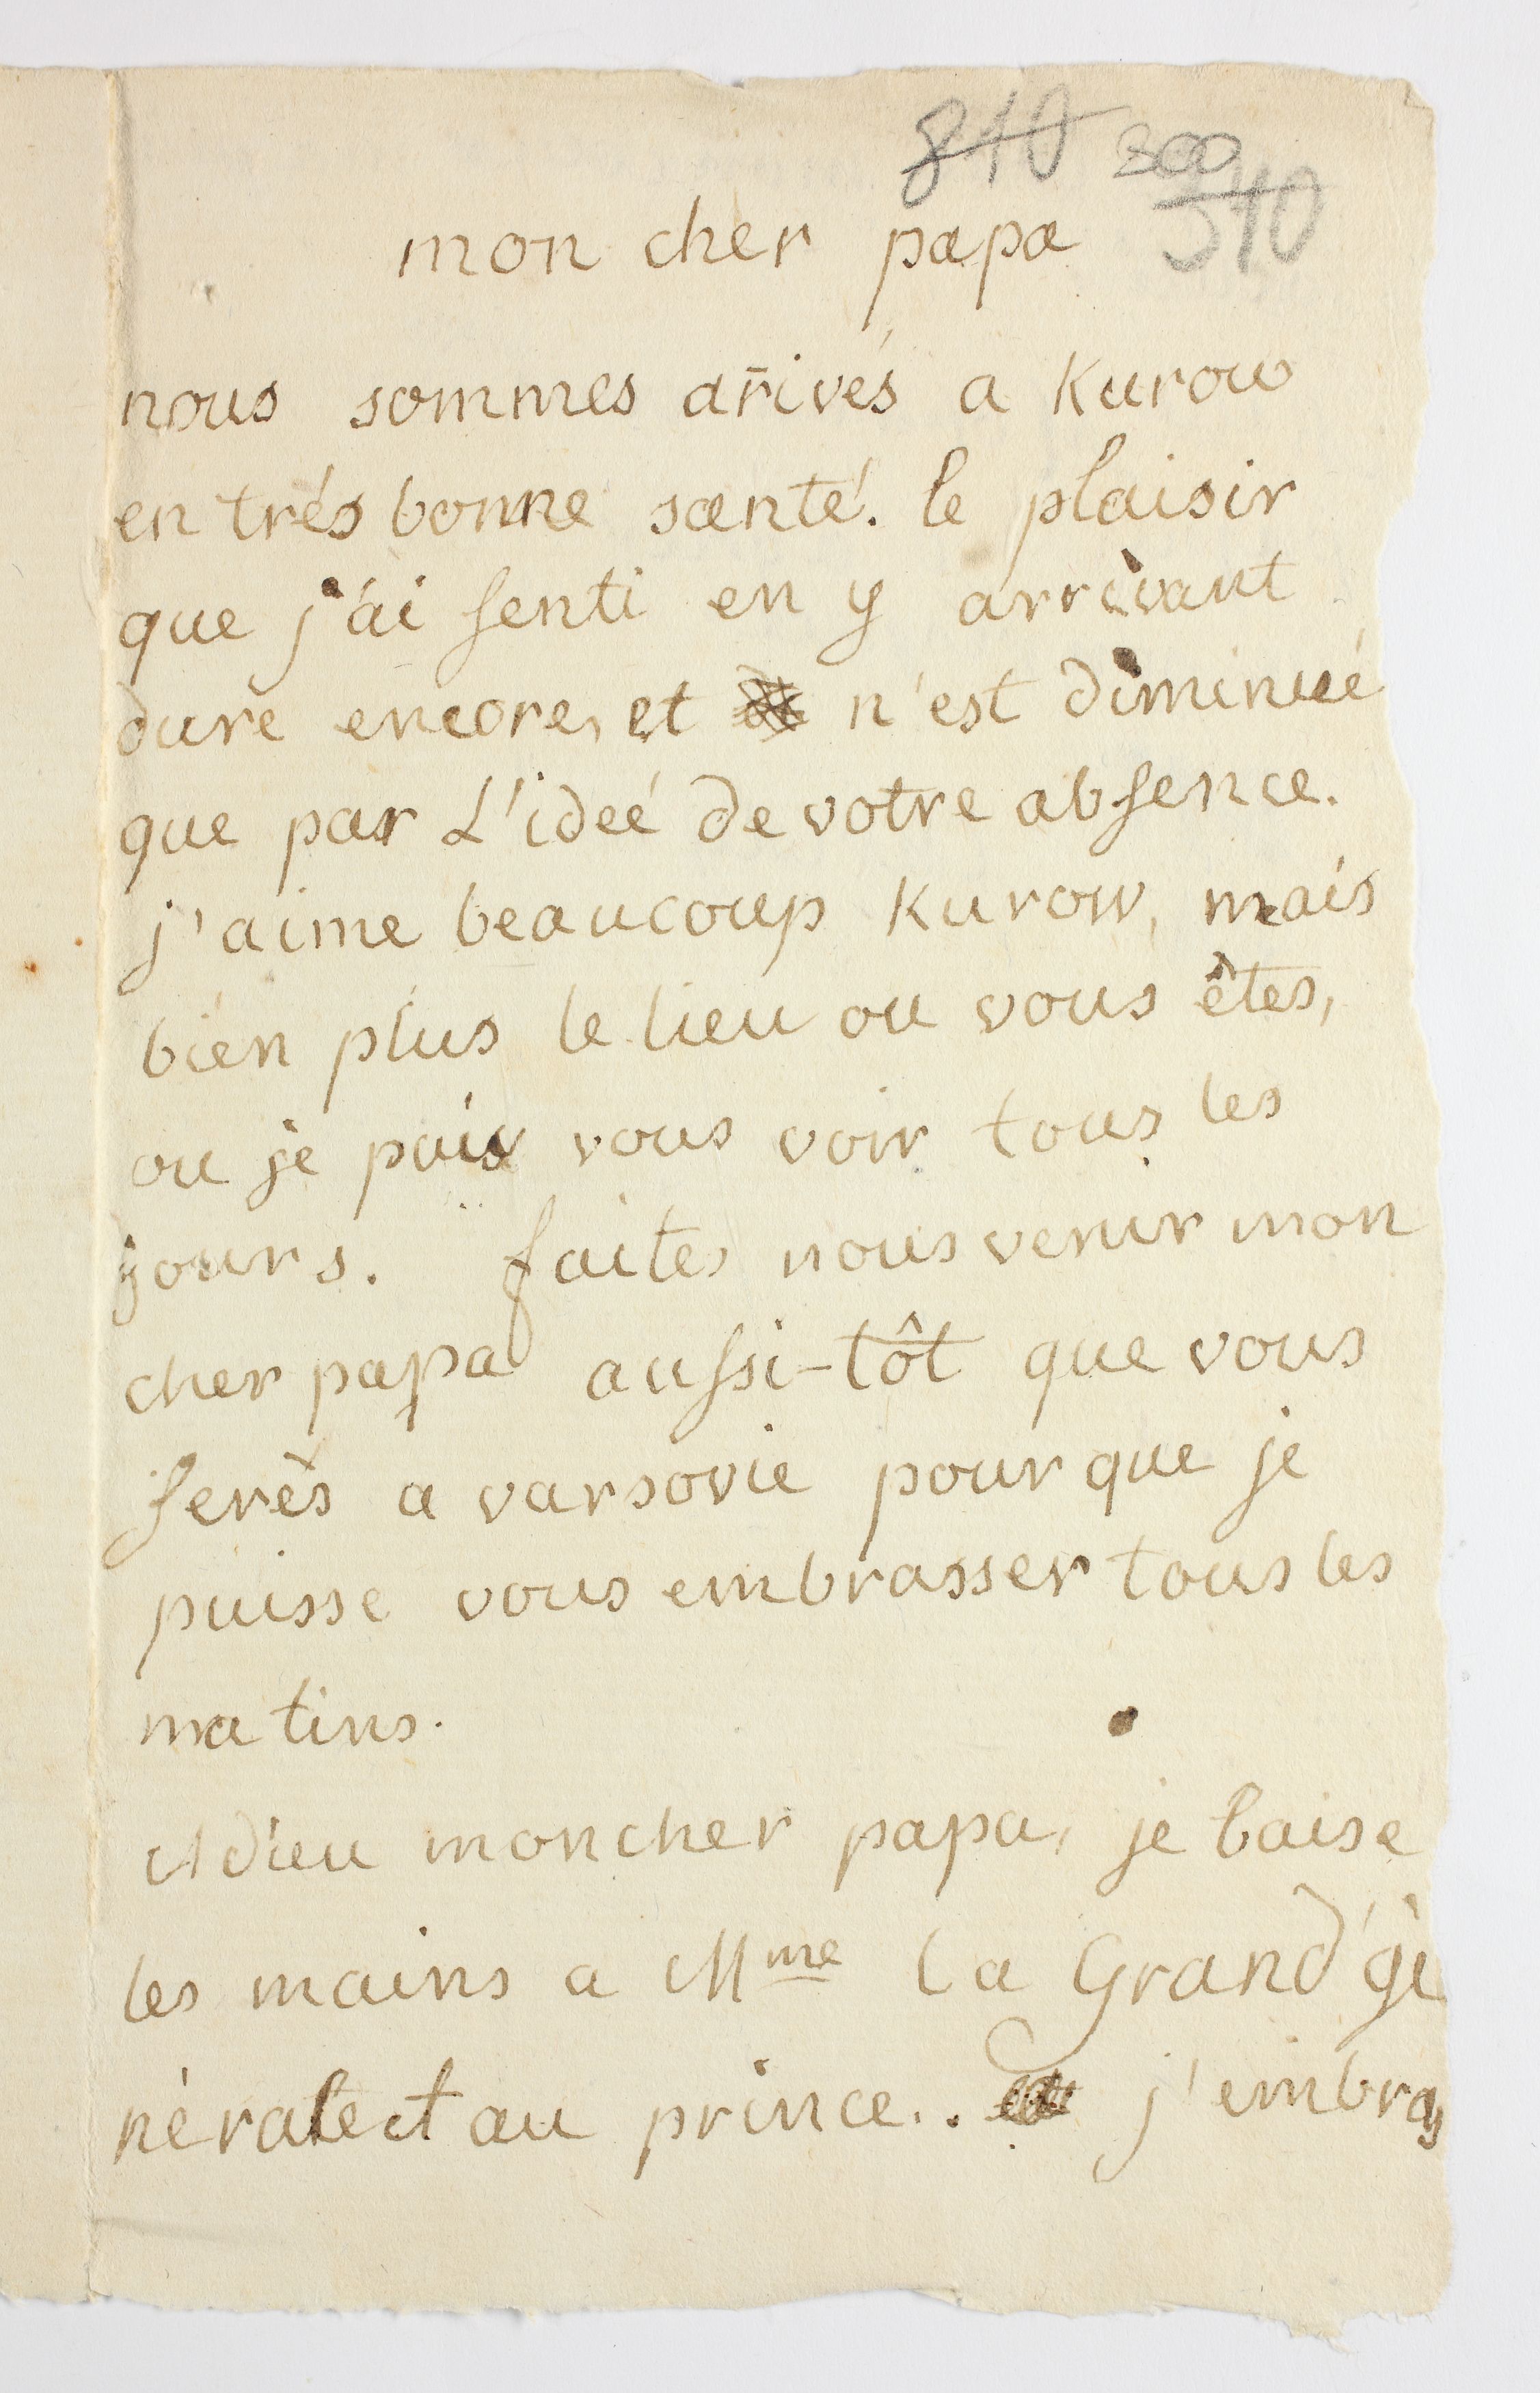 810 300
310
mon cher papa
nous sommes arivés a Kurow
en trés bonne santé. le plaisir
que j'ai senti en y arrivant
dure encore, et n'est diminué
que par L'ideé de votre absence.
j'aime beaucoup Kurow, mais
bien plus le lieu ou vous êtes,
ou je puis vous voir tous les
jours. faites nous venir mon
cher papa aussi-tôt que vous
serès a varsovie pour que je
puisse vous embrasser tous les
matins.
Adieu mon cher papa, je baise
les mains a Mme la Grand'gé
nérale et au prince.. j'embras